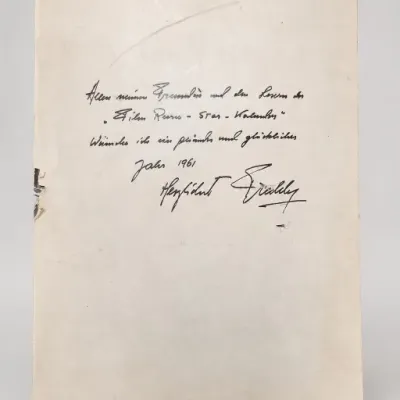 Allen meinen Freunden und den Lesern des
"Film Revue - Star - Kalenders"
Wünsche ich ein gesundes und glückliches
Jahr 1961
Herzlichst Freddy